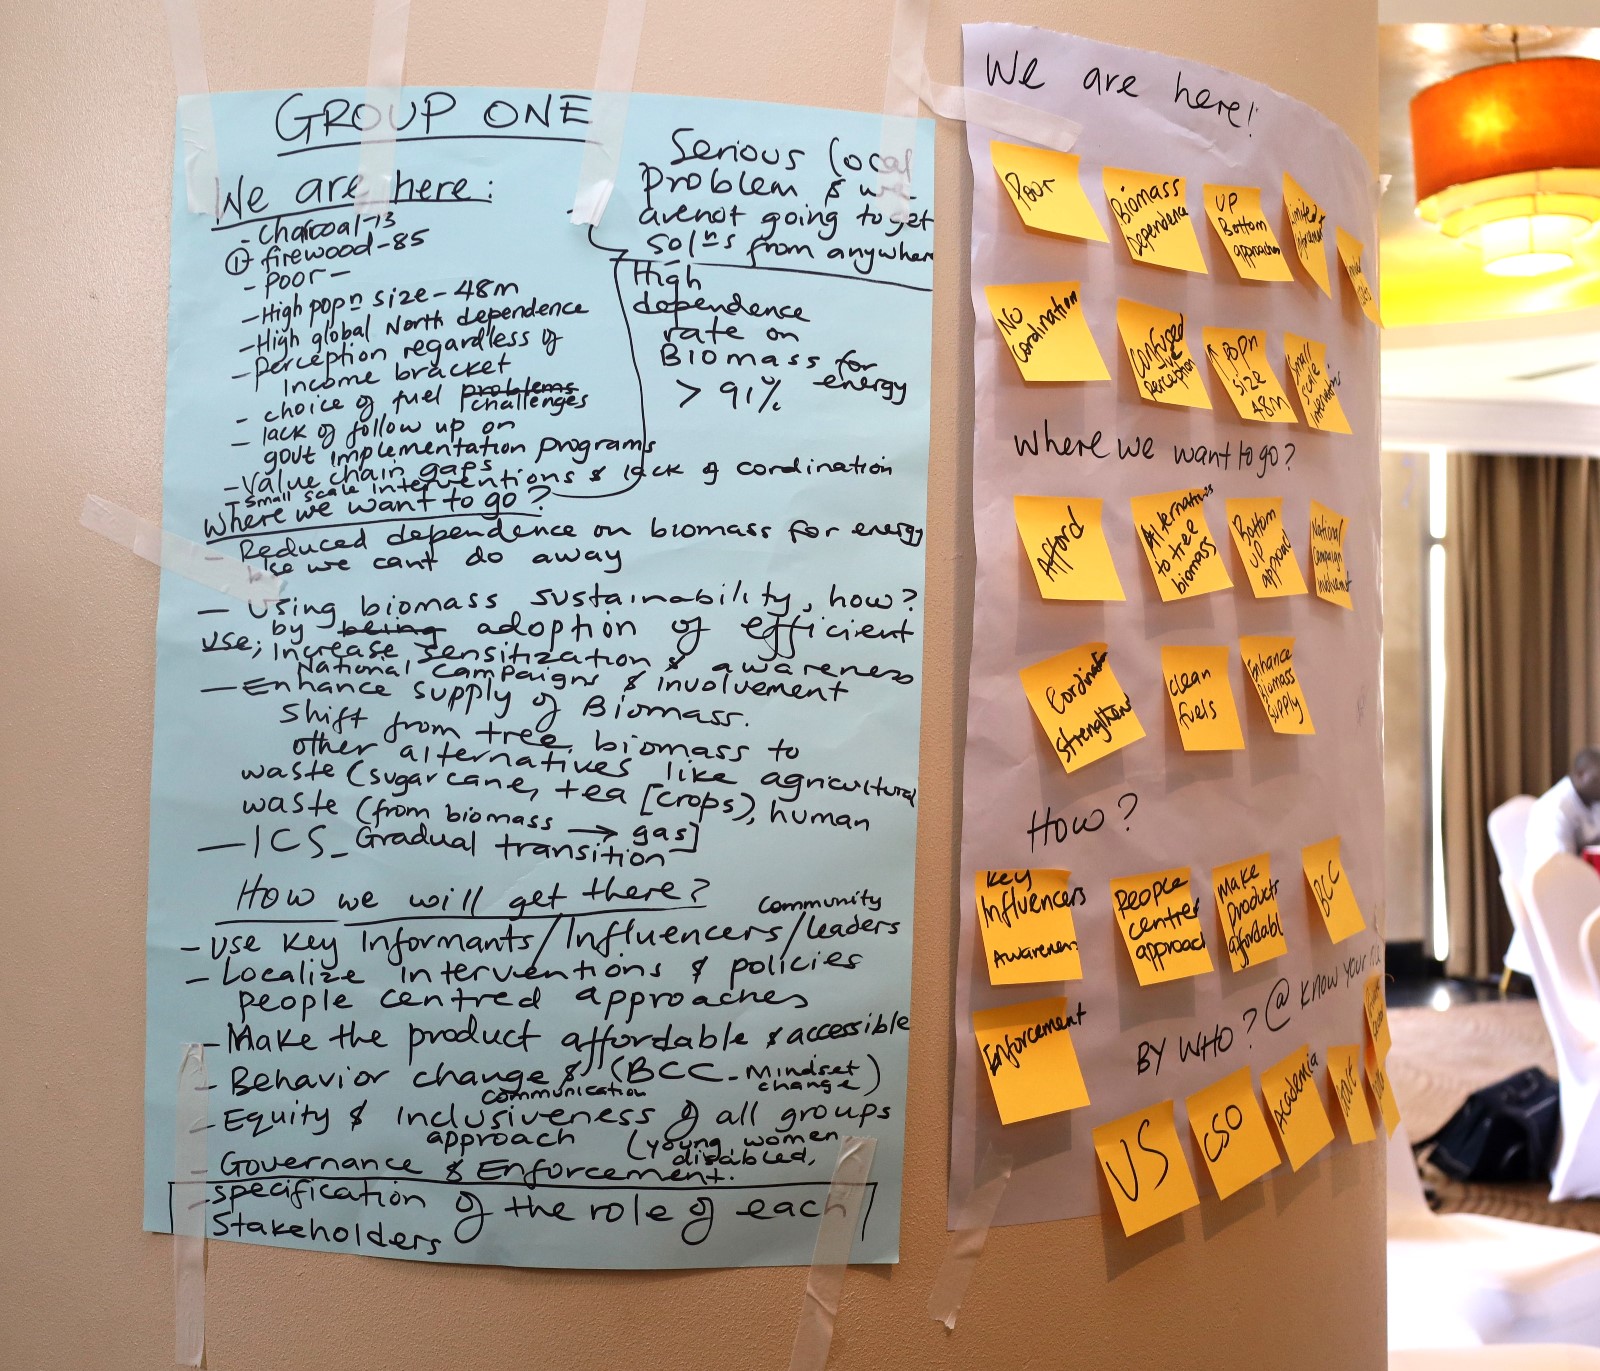 GROUP ONE
We are here:
- charcoal-73
① firewood-85
- Poor -
- High popn size - 48m
- High global North dependence
- Perception regardless of
Income bracket
- choice of fuel problems challenges
- lack of follow up on
govt implementation programs
- Value chain gaps
- Small scale interventions & lack of cordination
Serious local
problem & we
arenot going to get
solns from anywhere
High
dependence
rate on
Biomass for
energy
> 91%
Where we want to go?
- Reduced dependence on biomass for energy
we cant do away
- Using biomass sustainability, how?
by being adoption of efficient
use; increase sensitization & awareness
National Campaigns & involvement
- Enhance supply of Biomass.
Shift from tree biomass to
other alternatives like agricultural
waste (sugarcane, tea [crops), human
waste (from biomass → gas]
- ICS - Gradual transition
How we will get there?
community
- Use Key Informants/Influencers/leaders
- Localize interventions & policies
people centred approaches
- Make the product affordable & accessible
- Behavior change & (BCC - Mindset
communication change)
- Equity & inclusiveness of all groups
approach (young women,
disabled,
- Governance & Enforcement.
- specification of the role of each
Stakeholders
We are here!
Poor
Biomass
Dependence
UP
Bottom
approaches
Limited
No
Cordination
Confused
perception
↑ popn
size
48m
Small
scale
interventions
Where we want to go?
Afford
Alternatives
to tree
biomass
Bottom
up
approach
National
Campaign
involvement
Cordinat
strengthen
clean
fuels
Enhance
Biomass
supply
How?
Key
Influencers
Awareness
People
centred
approach
Make
products
affordabl
BCC
Enforcement
BY WHO? @ know your
US
CSO
Academia